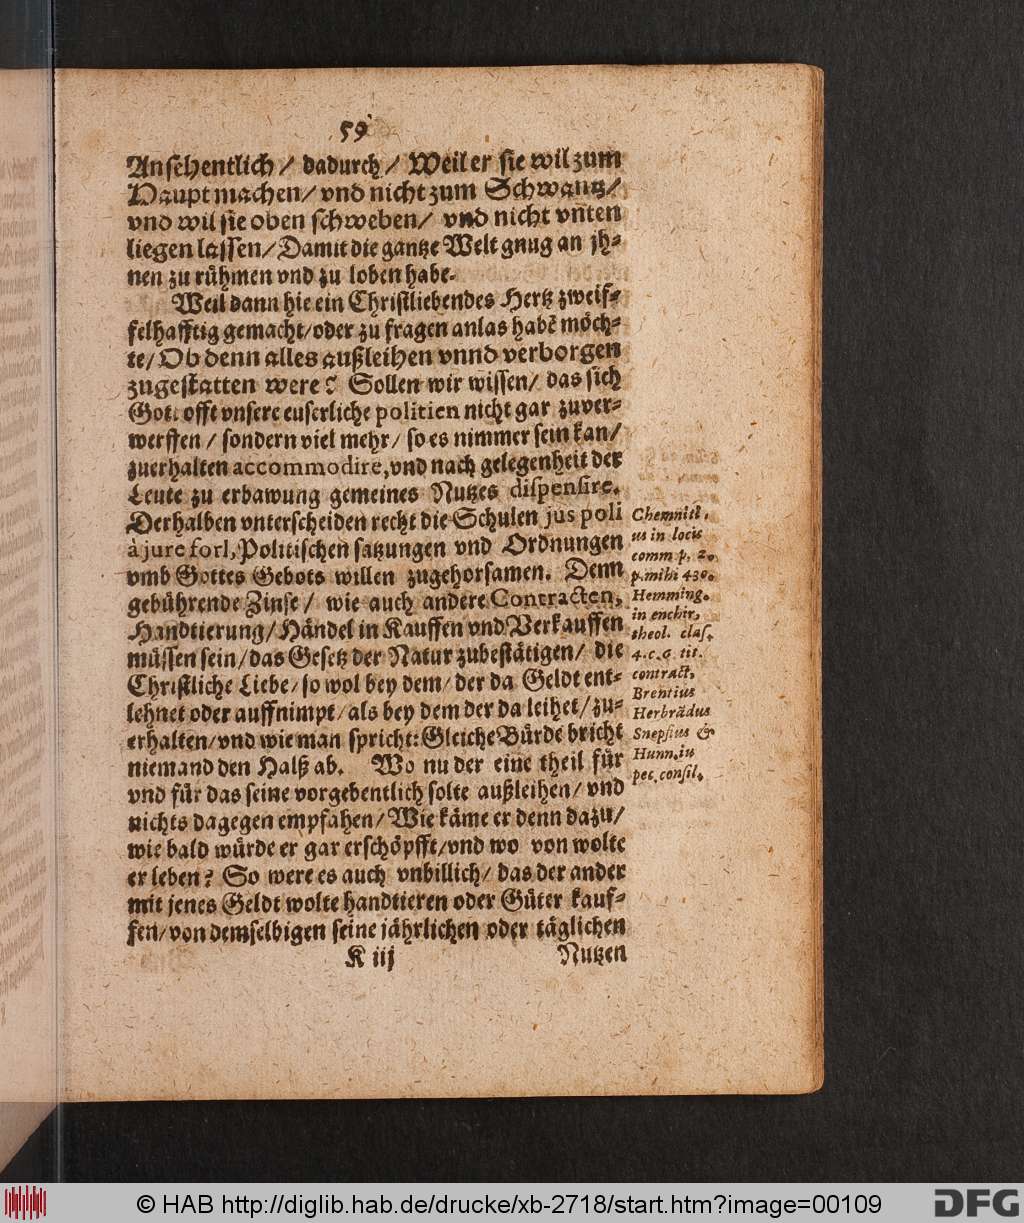 59
Ansehentlich/ dadurch/ Weil er sie wil zum
Haupt machen/ vnd nicht zum Schwantz/
vnd wil sie oben schweben/ vnd nicht vnten
liegen lassen/ Damit die gantze Welt gnug an jh-
nen zu rühmen vnd zu loben habe.
Weil dann hie ein Christliebendes Hertz zweif-
felhafftig gemacht/ oder zu fragen anlas habē möch-
te/ Ob denn alles außleihen vnnd verborgen
zugestatten were? Sollen wir wissen/ das sich
Gott offt vnsere euserliche politien nicht gar zuver-
werffen/ sondern viel mehr/ so es nimmer sein kan/
zuerhalten accommodire, vnd nach gelegenheit der
Leute zu erbawung gemeines Nutzes dispensire.
Derhalben vnterscheiden recht die Schulen jus poli
à jure forl, Politischen satzungen vnd Ordnungen
vmb Gottes Gebots willen zugehorsamen. Denn
gebührende Zinse/ wie auch andere Contracten,
Handtierung/ Händel in Kauffen vnd Verkauffen
müssen sein/ das Gesetz der Natur zubestätigen/ die
Christliche Liebe/ so wol bey dem/ der da Geldt ent-
lehnet oder auffnimpt/ als bey dem der da leihet/ zu-
erhalten/ vnd wie man spricht: Gleiche Bürde bricht
niemand den Halß ab. Wo nu der eine theil für
vnd für das seine vorgebentlich solte außleihen/ vnd
nichts dagegen empfahen/ Wie käme er denn dazu/
wie bald würde er gar erschöpfft/ vnd wo von wolte
er leben? So were es auch vnbillich/ das der ander
mit jenes Geldt wolte handtieren oder Güter kauf-
fen/ von demselbigen seine jährlichen oder täglichen
K iij Nutzen
Chemnitl,
us in locis
comm p. 2.
p. mihi 430.
Hemming.
in enchir,
theol. clas.
4. c. 6 tit.
contract,
Brentius
Herbrädus
Snepfius &
Hunn. in
pec. consil.
© HAB http://diglib.hab.de/drucke/xb-2718/start.htm?image=00109
DFG